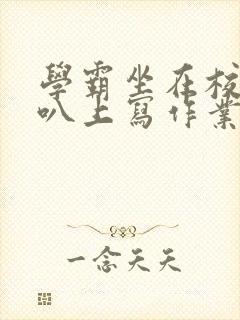 學霸坐在校
叭上寫作業
一念天天